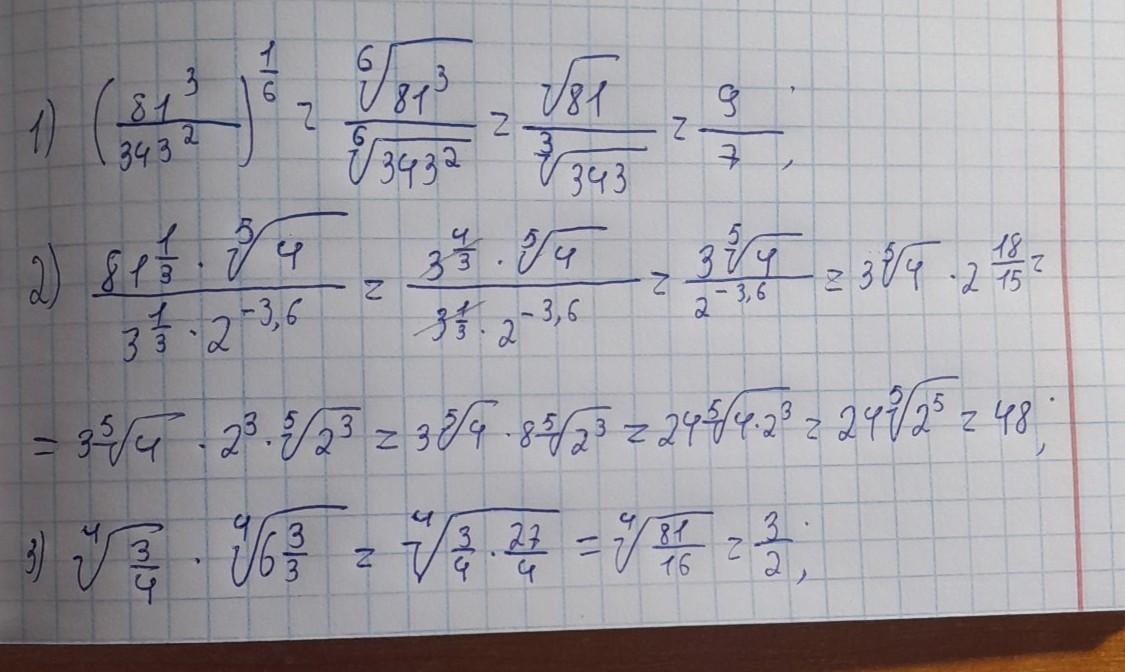 1) (81³/343²)^(1/6) = ⁶√(81³)/⁶√(343²) = √81/³√343 = 9/7;
2) (81^(1/3) · ⁵√4)/(3^(1/3) · 2^(-3,6)) = (3^(4/3) · ⁵√4)/(3^(1/3) · 2^(-3,6)) = (3⁵√4)/(2^(-3,6)) = 3⁵√4 · 2^(18/15) =
= 3⁵√4 · 2³ · ⁵√(2³) = 3⁵√4 · 8⁵√(2³) = 24⁵√(4·2³) = 24⁵√(2⁵) = 48;
3) ⁴√(3/4) · ⁴√(6 3/3) = ⁴√(3/4 · 27/4) = ⁴√(81/16) = 3/2;